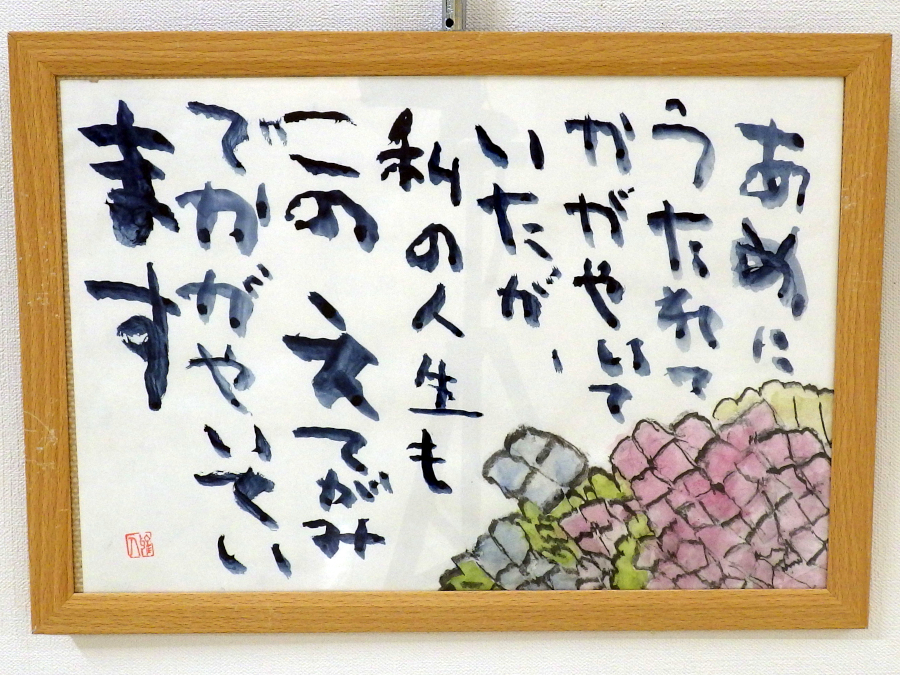 あめに
うたれて
かがやいて
いたが、
私の人生も
この えてがみ
でかがやいてい
ます